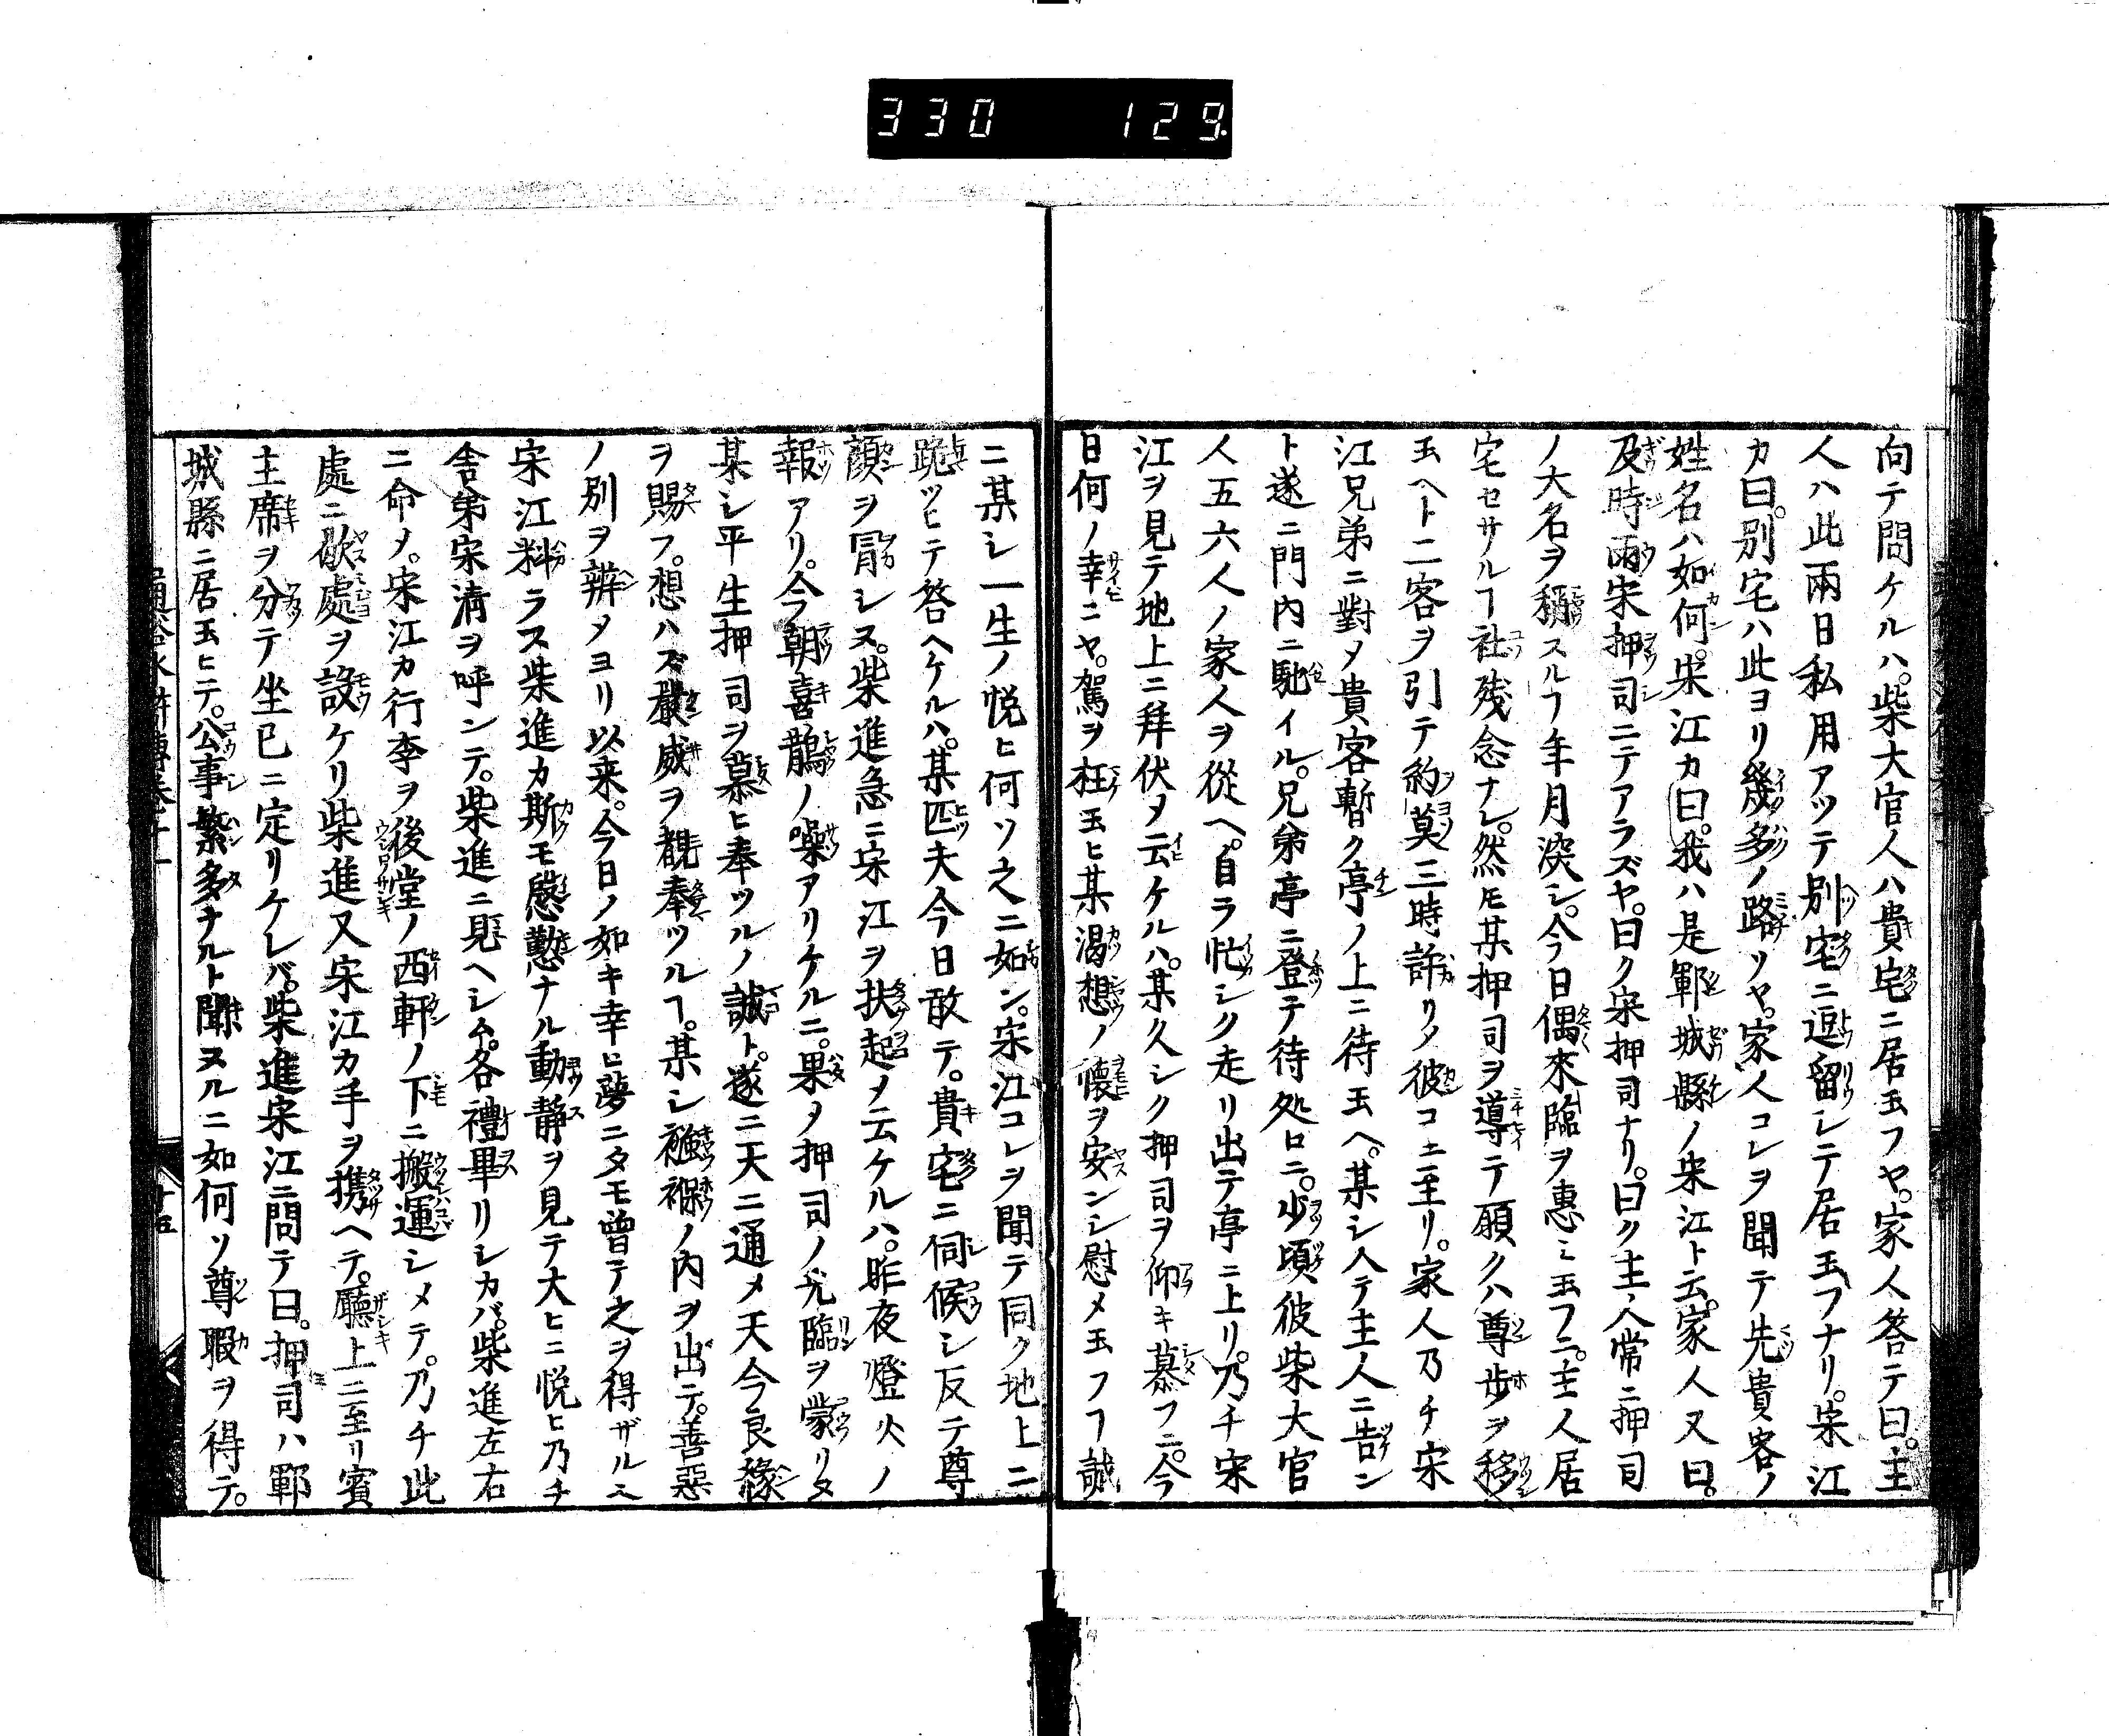 330 129
向テ問ケルハ。柴大官人ハ貴宅ニ居玉フヤ。家人答テ曰。主
人ハ此兩日私用アツテ別宅ニ逗留シテ居玉フナリ。宋江
カ曰。別宅ハ此ヨリ幾多ノ路ソヤ。家人コレヲ聞テ先貴客ノ
姓名ハ如何。宋江カ曰。我ハ是鄆城縣ノ宋江ト云。家人又曰。
及時雨宋押司ニテアラズヤ。曰ク宋押司ナリ。曰ク主人常ニ押司
ノ大名ヲ稱スルヿ年月深シ。今日偶來臨ヲ惠ミ玉フニ。主人居
宅セサルヿ社残念ナレ。然𪜈某押司ヲ導テ願クハ尊歩ヲ移シ
玉ヘト二客ヲ引テ約莫三時許リノ彼コニ至リ。家人乃チ宋
江兄弟ニ對メ貴客暫ク亭ノ上ニ待玉ヘ。某シ入テ主人ニ告ン
ト遂ニ門内ニ馳イル。兄弟亭ニ登テ待処ロニ。少頃彼柴大官
人五六人ノ家人ヲ從ヘ。自ラ忙シク走リ出テ亭ニ上リ。乃チ宋
江ヲ見テ地上ニ拜伏ヲ云ケルハ。某久シク押司ヲ仰キ慕フニ。今
日何ノ幸ニヤ。駕ヲ枉玉ヒ某渇想ノ懷ヲ安ンシ慰メ玉フヿ誠
ニ某シ一生ノ悦ヒ何ソ之ニ如ン。宋江コレヲ聞テ同ク地上ニ
跪ツヒテ答ヘケルハ。某匹夫今日敢テ。貴宅ニ伺候シ反テ尊
顔ヲ冐シヌ。柴進急ニ宋江ヲ扶起メ云ケルハ。昨夜燈火ノ
報アリ。今朝喜鵲ノ噪アリケルニ。果メ押司ノ光臨ヲ蒙リヌ
某シ平生押司ヲ慕ヒ奉ツルノ誠ト。遂ニ天ニ通メ天今良縁
ヲ賜フ。想ハズ嚴威ヲ覩奉ツルヿ。某シ襁褓ノ内ヲ出テ。善惡
ノ別ヲ辨メヨリ以来。今日ノ如キ幸ヒ夢ニタモ曾テ之ヲ得ザルニ
宋江料ラス柴進カ斯モ慇懃ナル動靜ヲ見テ大ヒニ悦ヒ乃チ
舎弟宋淸ヲ呼ンテ。柴進ニ見ヘシム。各禮畢リシカバ。柴進左右
ニ命メ。宋江カ行李ヲ後堂ノ西軒ノ下ニ搬運シメテ。乃チ此
處ニ歇處ヲ設ケリ柴進又宋江カ手ヲ携ヘテ。廳上ニ至リ賓
主席ヲ分テ坐已ニ定リケレバ。柴進宋江ニ問テ曰。押司ハ鄆
城縣ニ居玉ヒテ。公事繁多ナルト聞ヌルニ如何ソ尊暇ヲ得テ。
十五